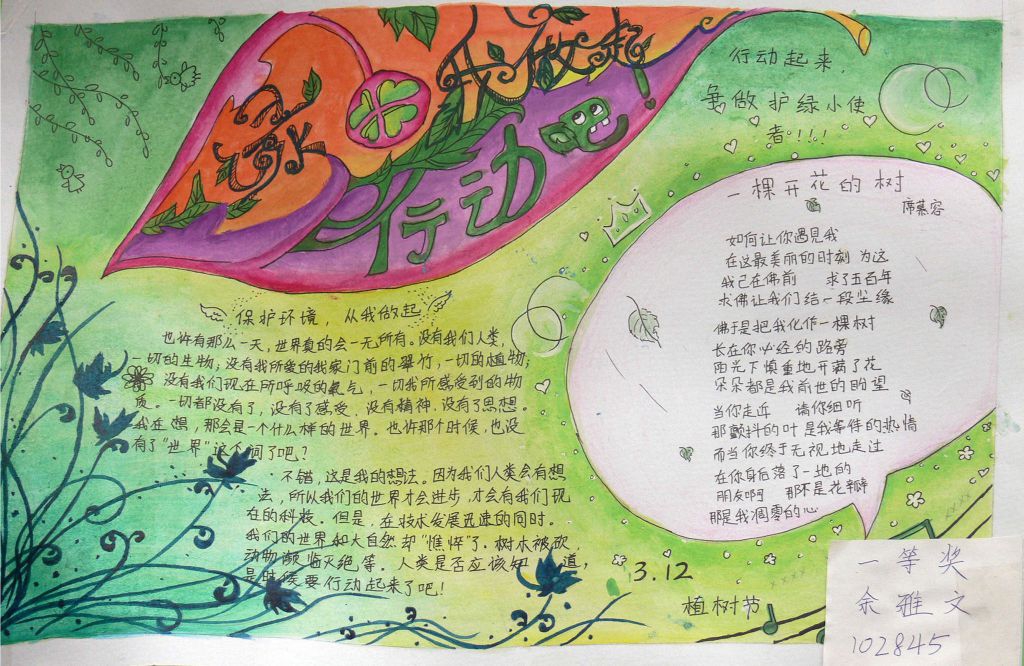 绿水
我做起
行动吧!
行动起来,
争做护绿小使
者!!!
一棵开花的树
席慕容
如何让你遇见我
在这最美丽的时刻 为这
我已在佛前 求了五百年
求佛让我们结一段尘缘
佛于是把我化作一棵树
长在你必经的路旁
阳光下慎重地开满了花
朵朵都是我前世的盼望
当你走近 请你细听
那颤抖的叶是我等待的热情
而当你终于无视地走过
在你身后落了一地的
朋友啊 那不是花瓣
那是我凋零的心
保护环境,从我做起
也许有那么一天,世界真的会一无所有。没有我们人类,
一切的生物;没有我所爱的我家门前的翠竹,一切的植物;
没有我们现在所呼吸的氧气,一切我所感受到的物
质。一切都没有了,没有了感受,没有精神,没有了思想。
我在想,那会是一个什么样的世界。也许那个时候,也没
有了"世界"这个词了吧?
不错,这是我的想法。因为我们人类会有想
法,所以我们的世界才会进步,才会有我们现
在的科技。但是,在技术发展迅速的同时。
我们的世界和大自然却"憔悴"了。树木被砍,
动物濒临灭绝等。人类是否应该知道,
是时候要行动起来了吧!
3.12
植树节
一等奖
余雅文
102845